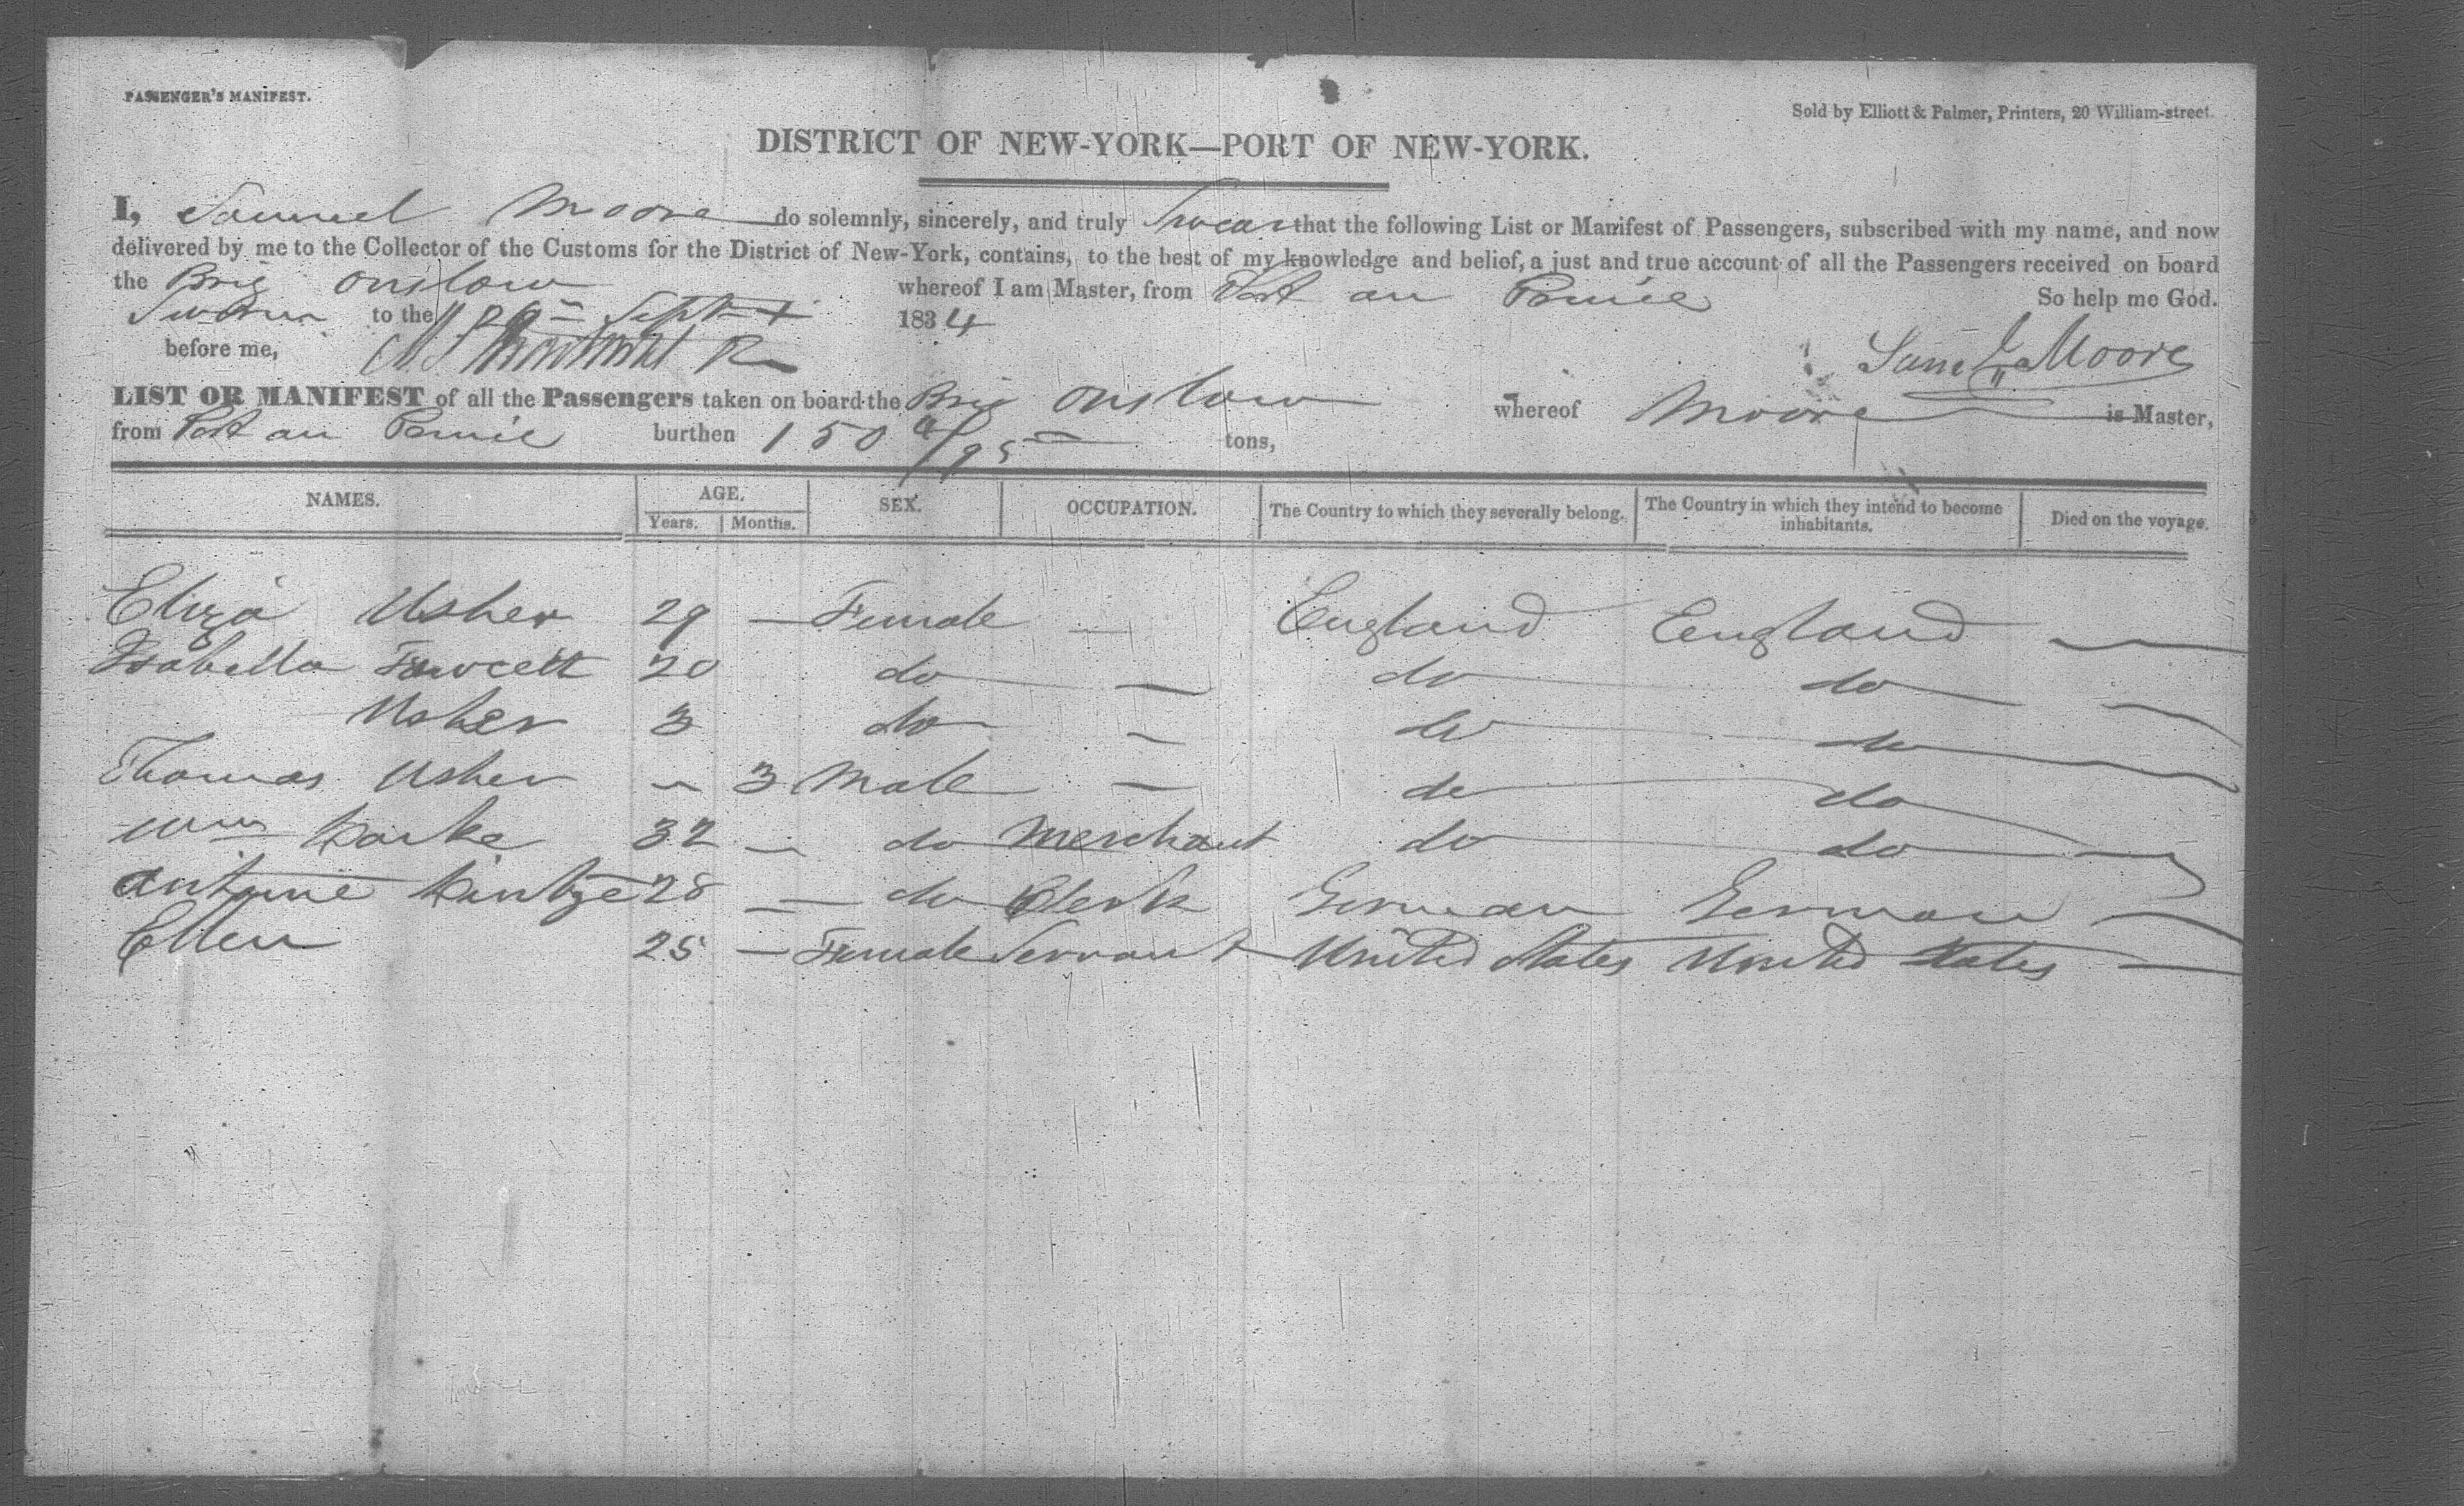 PASSENGER'S MANIFEST.
Sold by Elliott & Palmer, Printers, 20 William-street.
DISTRICT OF NEW-YORK—PORT OF NEW-YORK.
I, Samuel Moore do solemnly, sincerely, and truly Swear that the following List or Manifest of Passengers, subscribed with my name, and now
delivered by me to the Collector of the Customs for the District of New-York, contains, to the best of my knowledge and belief, a just and true account of all the Passengers received on board
the Brig Onslow whereof I am Master, from Port au Prince So help me God.
Sworn to the 29th Sept 1834
before me, Saml Moore
LIST OR MANIFEST of all the Passengers taken on board the Brig Onslow whereof Moore is Master,
from Port au Prince burthen 150 /95 tons,
NAMES. AGE. SEX. OCCUPATION. The Country to which they severally belong. The Country in which they intend to become inhabitants. Died on the voyage.
Years. Months.
Eliza Usher 29 — Female — England England —
Isabella Fawcett 20 do — do do —
Usher 3 do — do do —
Thomas Usher — 3 Male — do do
Wm 32 — do Merchant do do —
Antoine 28 — do Clerk German German —
Ellen 25 — Female Servant United States United States —